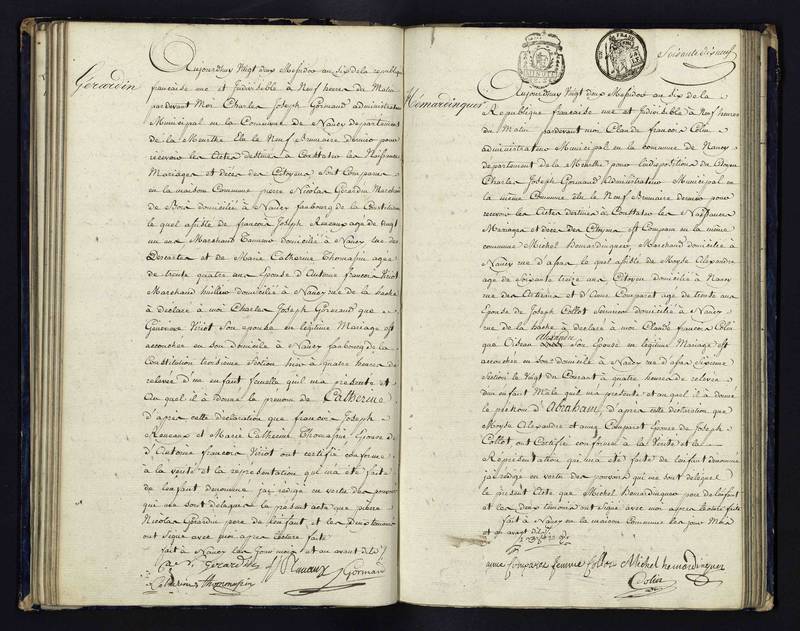 Gerardin
Aujourdhuy Vingt deux Messidor an six de la republique
francaise une et Indivisible à Neuf heures du Matin
pardevant Moi Charles Joseph Gormand administrateur
Municipal en la Commune de Nancy departement
de la Meurthe Elu le Neuf Brumaire dernier pour
recevoir les Actes destinés à Constater les Naissances
Mariages et décès des Citoyens Sont Comparus
en la maison Commune pierre Nicolas Gerardin Marchand
de Bois domicilié à Nancy faubourg de la Constitution
le quel assisté de francois Joseph Renaux age de vingt
un ans Marchand Tanneur domicilié à Nancy rue des
et de Marie Catherine Thomassin agée
de trente quatre ans Epouse d'Antoine francois Viriot
Marchand huillier domicilié à Nancy rue de la hache
à déclaré à moi Charles Joseph Gormand que
Genevieve Viriot Son epouse en legitime Mariage est
accouchée en son domicile à Nancy faubourg de la
Constitution troisieme Section hier à quatre heures de
relevée d'un enfant femelle quil ma presenté et
Au quel il à donné le prenom de Catherine
d'apres cette declaration que francois Joseph
Renaux et Marie Catherine Thomassin Epouse de
d'Antoine francois Viriot ont certifié conforme
à la verité et la representation qui ma été faite
de lenfant denommé jai rédigé en vertu des pouvoirs
qui me sont délégués le present acte que pierre
Nicolas Gerardin pere de lenfant et les deux temoins
ont Signé avec moi apres lecture faite
fait à Nancy les Jour mois et an avant dits
Gerardin Renaux Gormand
Catherine Thomassin
Soixante dix neuf
Hémardinquer
Aujourdhuy Vingt deux Messidor an six de la
Republique francaise une et Indivisible à Neuf heures
du Matin pardevant moi Claude francois Colin
administrateur Municipal en la commune de Nancy
departement de la Meurthe pour lindisposition du Citoyen
Charles Joseph Gormand Administrateur Municipal en
la même Commune Elu le Neuf Brumaire dernier pour
recevoir les Actes destinés à Constater les Naissances
Mariages et décès des Citoyens est Comparu en la même
commune Michel Hemardinquer Marchand domicilié à
Nancy rue le quel assisté de Moyse Alexandre
age de Soixante treize ans Citoyen domicilié à Nancy
rue des Artisans et d'Anne Comparet agé de trente ans
Epouse de Joseph Collot domicilié à Nancy
rue de la hache à déclaré à moi Claude francois Colin
que Alexandre Son Epouse en legitime Mariage est
accouchée en son domicile à Nancy rue Sixieme
Section le Vingt du Courant à quatre heures de relevée
dun enfant Male quil ma presenté et au quel il à donné
le prenom d'Abraham, d'apres cette declaration que
Moyse Alexandre et anne Comparet Epouse de Joseph
Collot ont Certifié conforme à la Verité et la
Représentation qui m'a été faite de lenfant denommé
jai rédigé en vertu des pouvoirs qui me sont délégués
le present Acte que Michel Hemardinquer pere de lenfant
et les deux temoins ont Signé avec moi apres lecture faite
fait à Nancy en la maison Commune les jour Mois
et an avant dits
anne Comparet femme Collot Michel hemardinquer
Colin